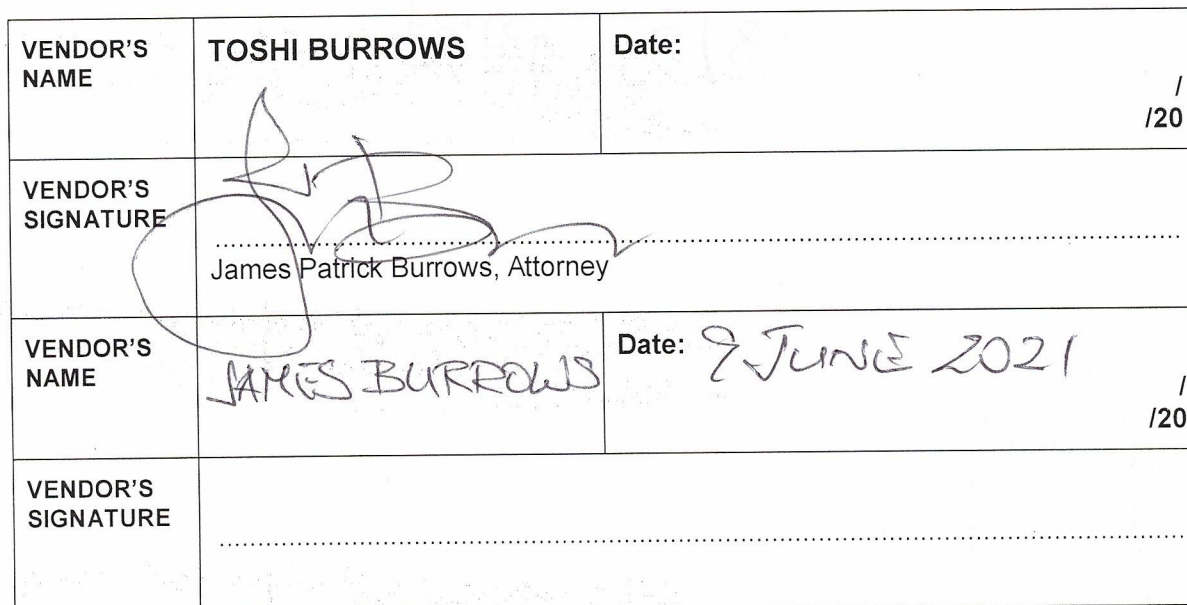 VENDOR'S NAME
TOSHI BURROWS
Date:
/
/20
VENDOR'S SIGNATURE
James Patrick Burrows, Attorney
VENDOR'S NAME
JAMES BURROWS
Date: 9 JUNE 2021
/
/20
VENDOR'S SIGNATURE